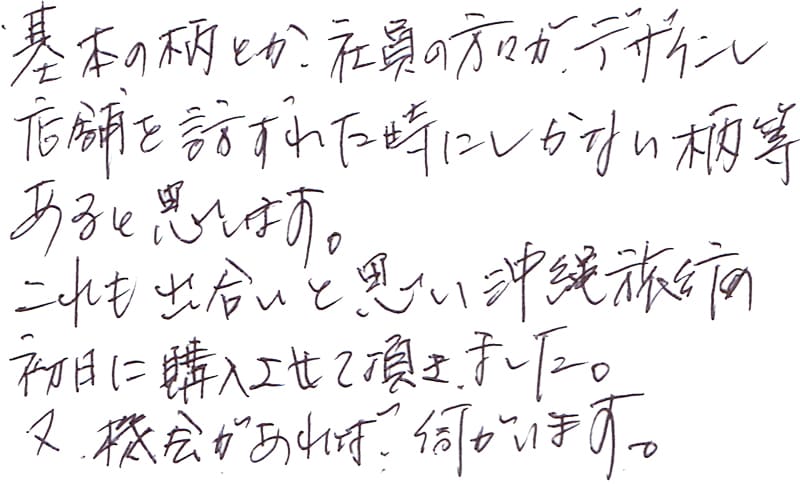 基本の柄とか、社員の方々が、デザインし
店舗を訪ずれた時にしかない柄等
あると思います。
これも出合いと思い沖縄旅行の
初日に購入させて頂きました。
又、機会があれば、伺がいます。